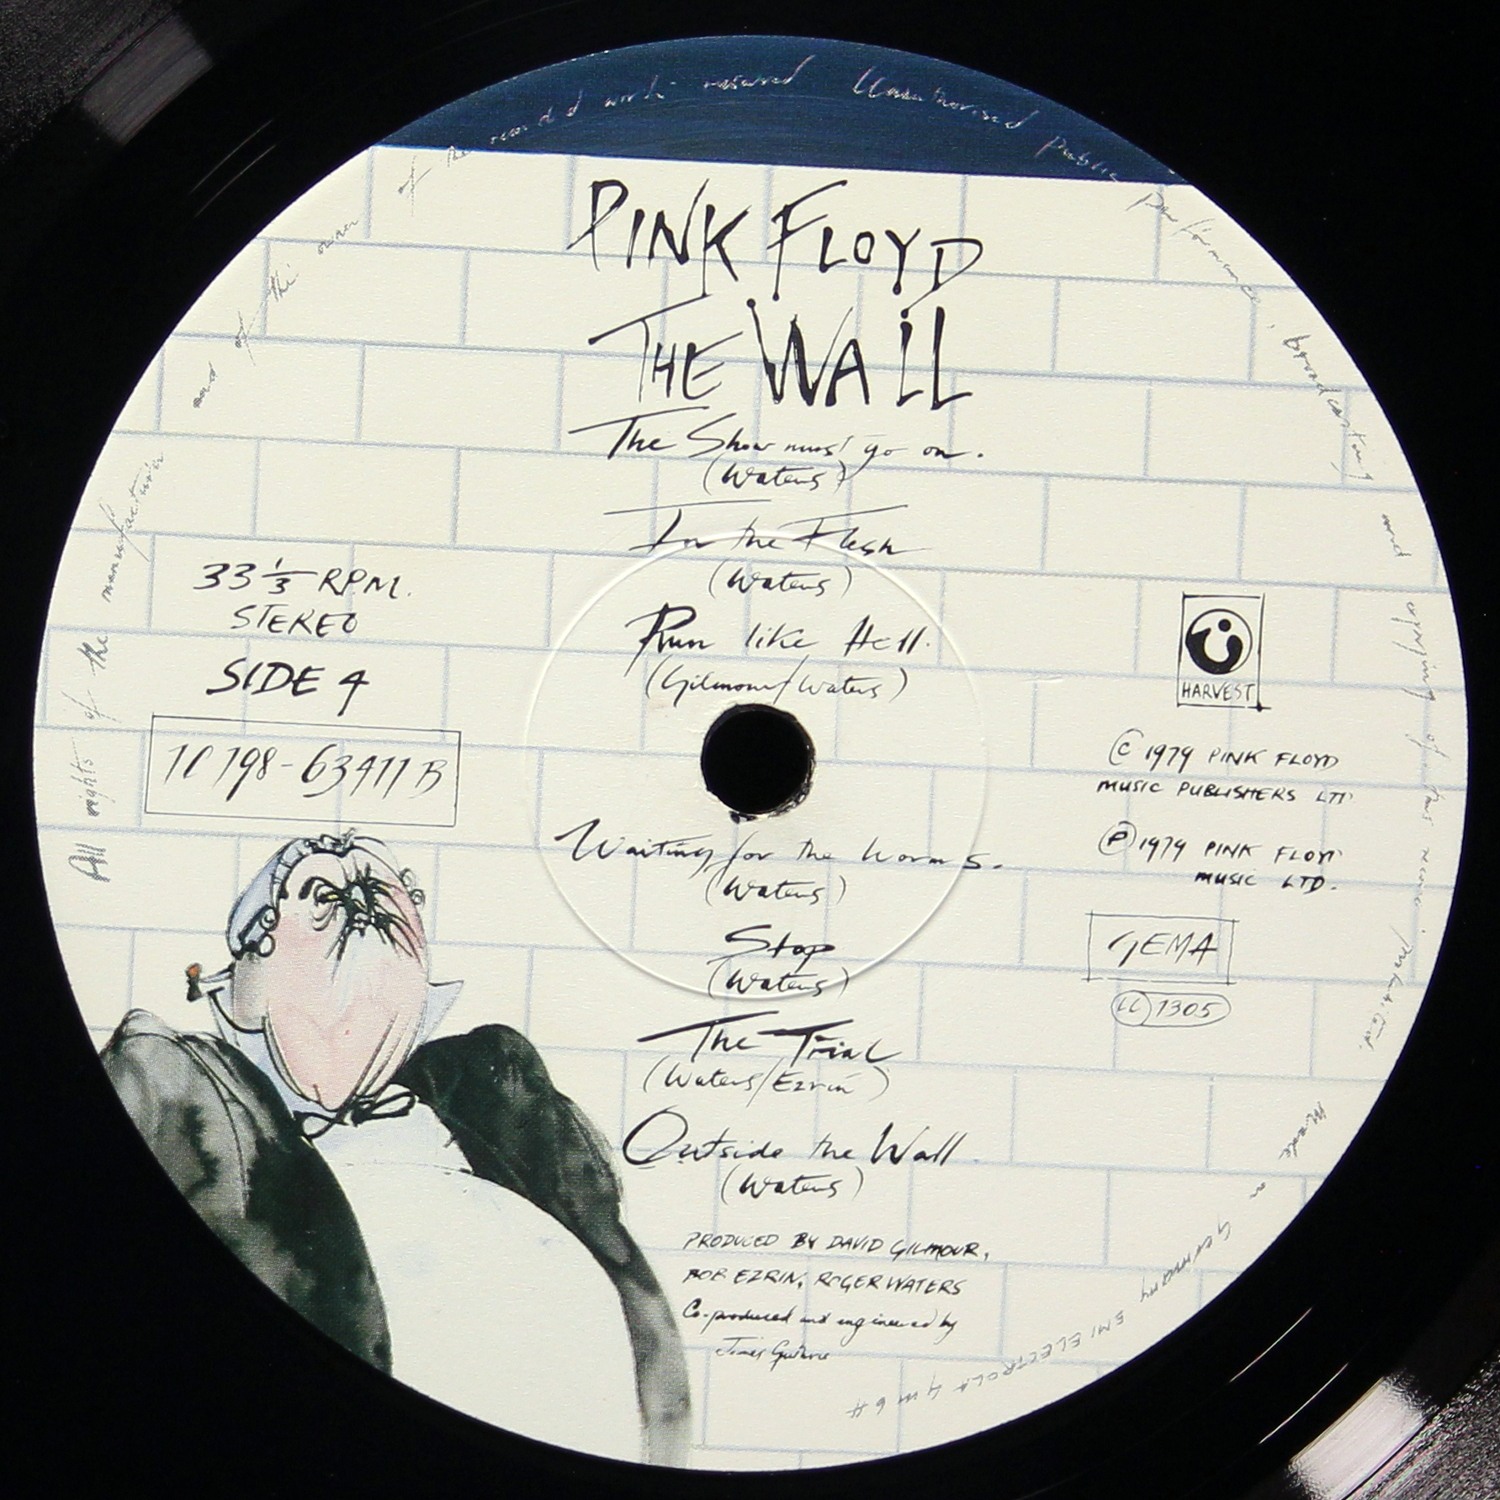 PINK FLOYD
THE WALL
The Show must go on.
(Waters)
In the Flesh
(Waters)
Run like Hell.
(Gilmour/Waters)
33 1/3 RPM.
STEREO
SIDE 4
1C 198-63411 B
HARVEST
© 1979 PINK FLOYD
MUSIC PUBLISHERS LTD
℗ 1979 PINK FLOYD
MUSIC LTD.
GEMA
LC 1305
Waiting for the Worms.
(Waters)
Stop
(Waters)
The Trial
(Waters/Ezrin)
Outside the Wall
(Waters)
PRODUCED BY DAVID GILMOUR,
BOB EZRIN, ROGER WATERS
Co-produced and engineered by
James Guthrie
All rights of the manufacturer and of the owner of the recorded work reserved Unauthorised public performance, broadcasting and copying of this record prohibited. Made in Germany EMI ELECTROLA GmbH